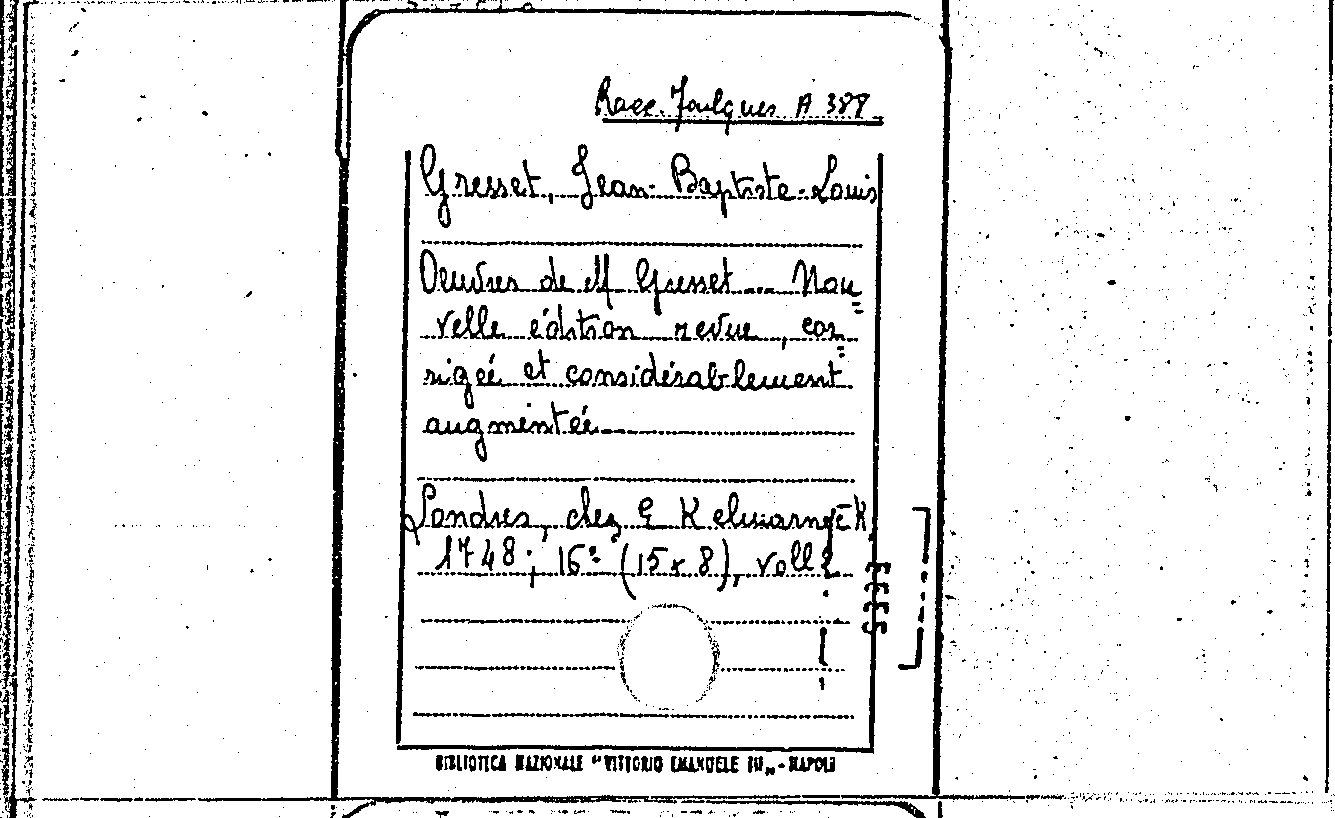 Racc. Foulques A 388
Gresset, Jean-Baptiste-Louis
Oeuvres de M Gresset... Nou=
velle édition revue, cor=
rigée et considérablement
augmentée
Londres, chez E Kelmarneck,
1748; 16° (15x8), voll 2
BIBLIOTECA NAZIONALE "VITTORIO EMANUELE III" - NAPOLI